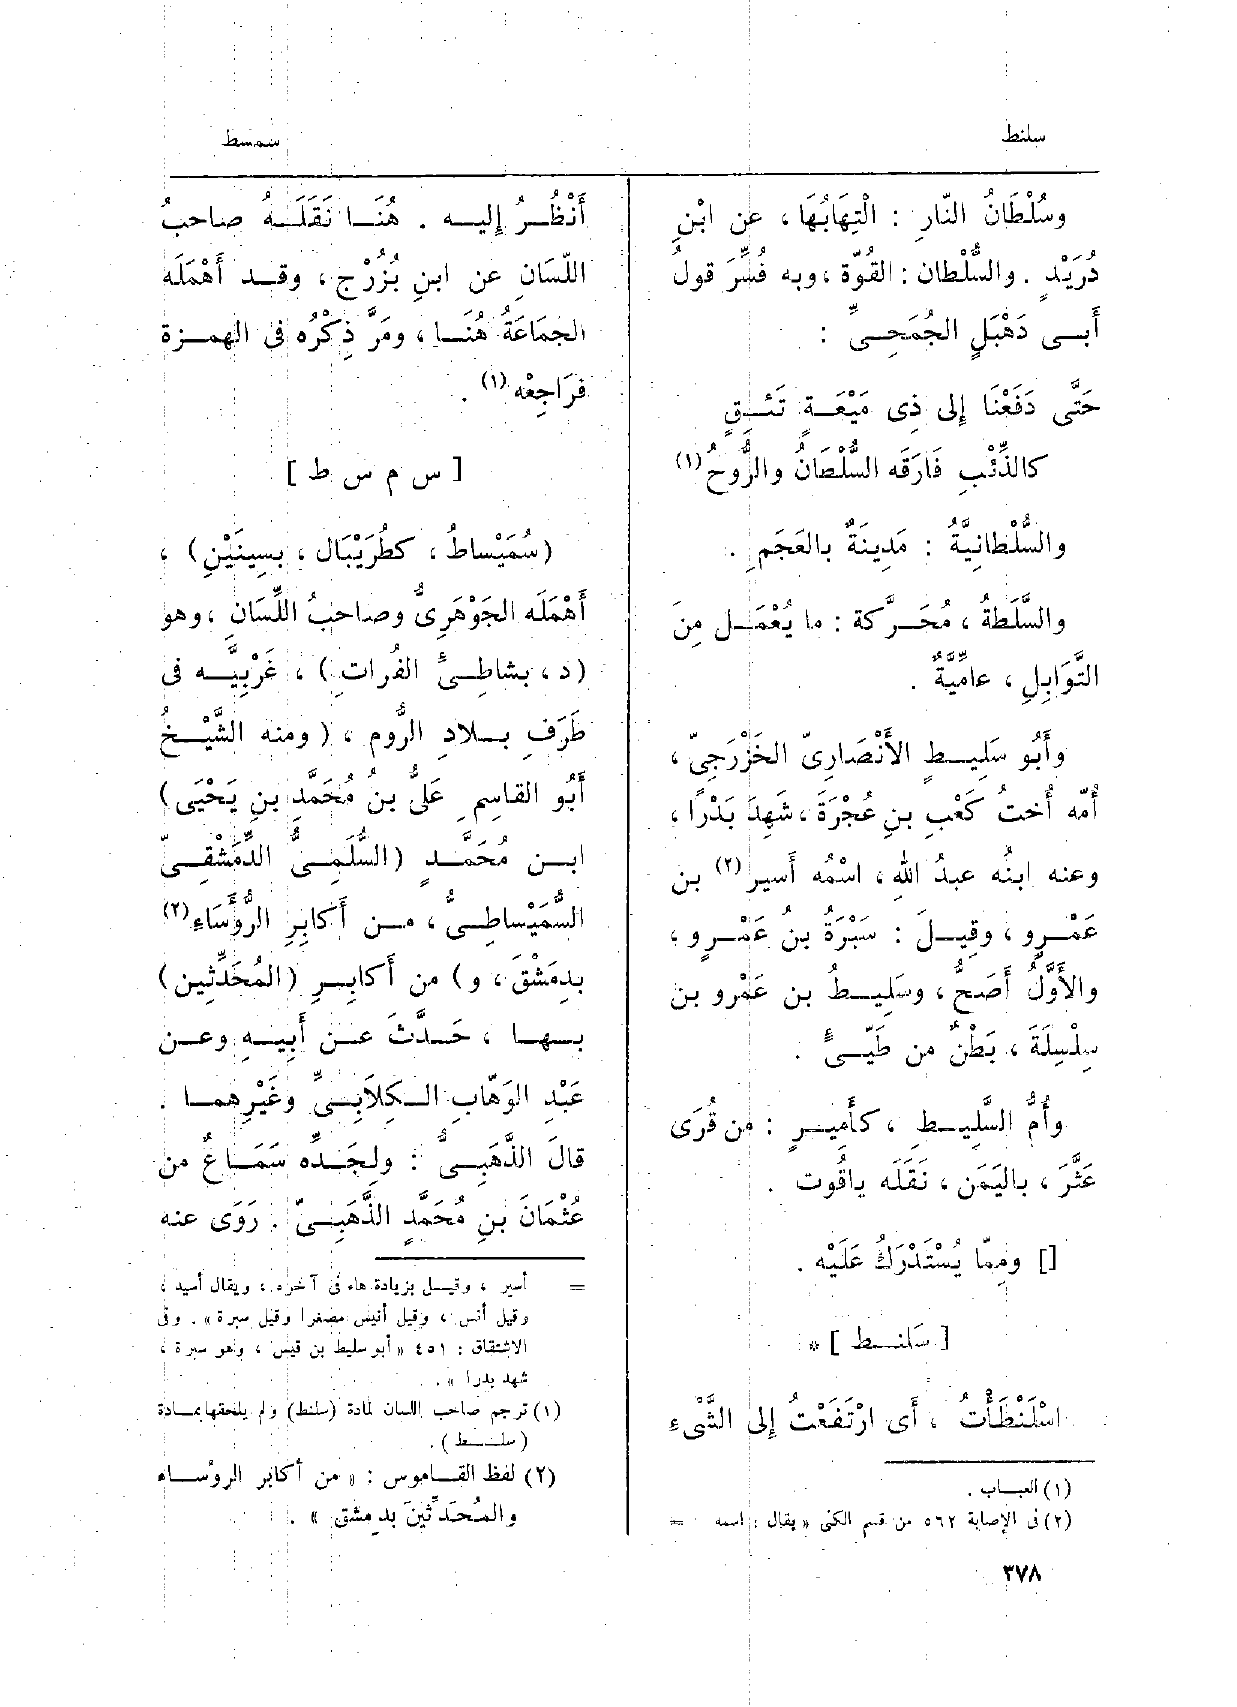 سلنط
سمسط
وسُلْطَانُ النّارِ : الْتِهَابُهَا ، عن ابْنِ
دُرَيْدٍ . والسُّلْطان : القُوّة ، وبه فُسِّرَ قولُ
أَبــى دَهْبَلٍ الجُمَحِــىِّ :
حَتَّى دَفَعْنَا إِلى ذِى مَيْعَــةٍ تَئــِقٍ
كالذِّئْبِ فَارَقَه السُّلْطَانُ والرُّوحُ (١)
والسُّلْطانِيَّةُ : مَدِينَةٌ بالعَجَمِ .
والسَّلَطَةُ ، مُحَــرَّكة : ما يُعْمَــل مِنَ
التَّوَابِلِ ، عامِّيَّةٌ .
وأَبُو سَلِيــطٍ الأَنْصَارِىّ الخَزْرَجِىّ ،
أُمّه أُختُ كَعْبِ بنِ عُجْرَةَ ، شَهِدَ بَدْرًا ،
وعنه ابنُه عبدُ الله ، اسْمُه أَسير (٢) بن
عَمْــرٍو ، وقِيــلَ : سَبْرَةُ بنُ عَمْــرٍو ،
والأَوَّلُ أَصَحُّ ، وسَلِيــطُ بن عَمْرو بن
سِلْسِلَةَ ، بَطْنٌ من طَيِّــىءٍ .
وأُمُّ السَّلِيــطِ ، كأَمِيــرٍ : من قُرَى
عَثَّرَ ، باليَمَن ، نَقَلَه ياقُوت .
[] ومِمّا يُسْتَدْرَكُ عَلَيْه .
[ سَلنــط ] *
اسْلَنْطَأْتُ ، أَى ارْتَفَعْتُ إِلى الشَّىْء
(١) العبــاب .
(٢) فى الإصابة ٥٦٢ من قسم الكنى « يقال : اسمه =
أَنْظُــرُ إِليــه . هُنَــا نَقَلَــهُ صاحبُ
اللّسَانِ عن ابنِ بُزُرْج ، وقــد أَهْمَلَه
الجمَاعَةُ هُنَــا ، ومَرَّ ذِكْرُه فى الهمــزة
فَرَاجِعْه (١) .
[ س م س ط ]
(سُمَيْساطُ ، كطُرَيْبَال ، بسِينَيْنِ) ،
أَهْمَلَه الجَوْهَرِىُّ وصاحبُ اللِّسَانِ ، وهو
(د ، بشاطِــئُ الفُراتِ) ، غَرْبِيَّــه فى
طَرَفِ بــلادِ الرُّوم ، (ومنه الشَّيْــخُ
أَبُو القاسِمِ عَلىُّ بنُ مُحَمَّدِ بنِ يَحْيَى)
ابــن مُحَمَّــدٍ (السُّلَمِــىُّ الدِّمَشْقِــىّ
السُّمَيْساطِــىُّ ، مــن أَكابِرِ الرُّؤَسَاءِ (٢)
بدِمَشْقَ ، و) من أَكابِــرِ (المُحَدِّثِين)
بــها ، حَــدَّثَ عــن أَبِيــهِ وعــن
عَبْدِ الوَهّابِ الــكِلَابِــىِّ وغَيْرِهمــا .
قالَ الذَّهَبِــىُّ : ولِجَــدِّه سَمَــاعٌ من
عُثْمَانَ بنِ مُحَمَّدٍ الذَّهَبِــىّ . رَوَى عنه
= أسير ، وقيــل بزيادة هاء فى آخره ، ويقال أسيد ،
وقيل أنس ، وقيل أنيس مصغرا وقيل سبرة » . وفى
الاشتقاق : ٤٥١ « أبو سليط بن قيس ، وهو سبرة ،
شهد بدرا » .
(١) ترجم صاحب اللسان لمادة (سلنط) ولم يلحقها بمــادة
(سلــط) .
(٢) لفظ القــاموس : « من أكابر الرؤســاء
والمُحَدِّثينَ بدمشق » .
٣٧٨